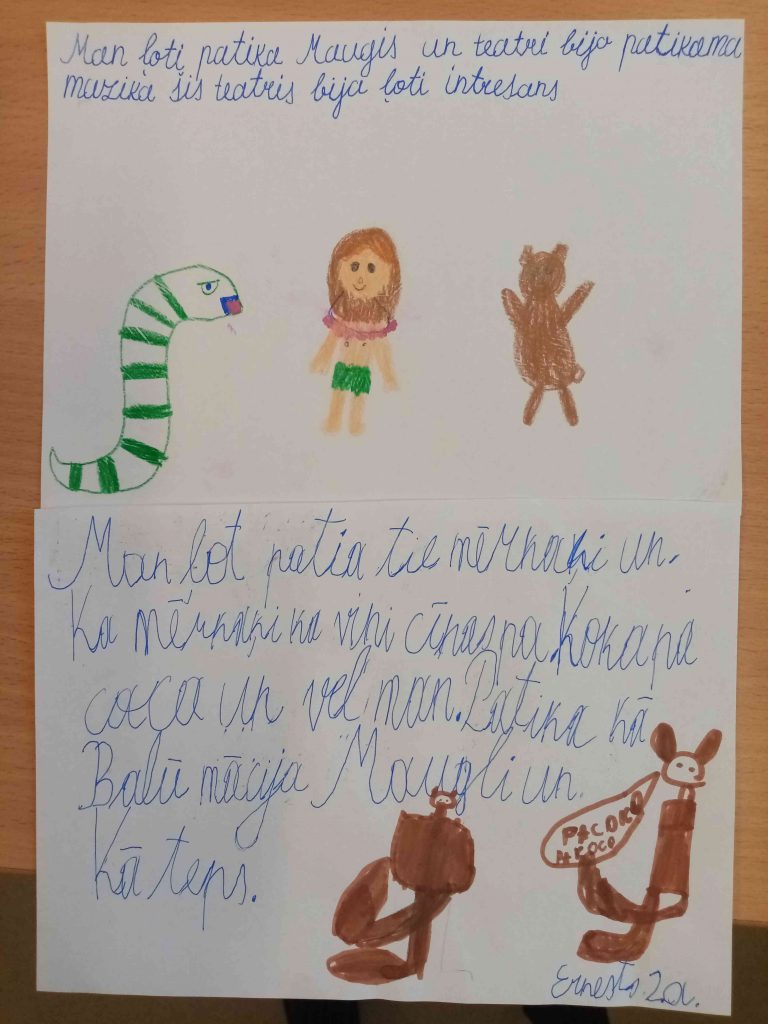 Man ļoti patika Maugis un teatri bija patikama
muzika šis teatris bija ļoti intresans
Man ļot patia tie mērkaķi un.
Ka mērkaķi ka viņi cīņaspa. Koka pa
coca uņ vel man. Patika kā
Balū mācija Maugli un.
Kā teps.
PACOKO
PACOCO
Ernests 2.a.